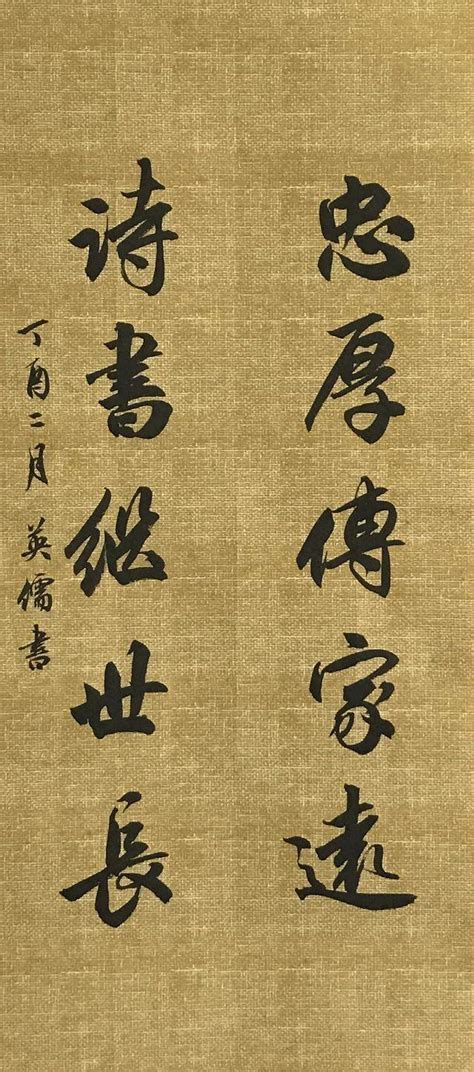 忠厚傳家遠
诗書继世長
丁酉二月 英儒書